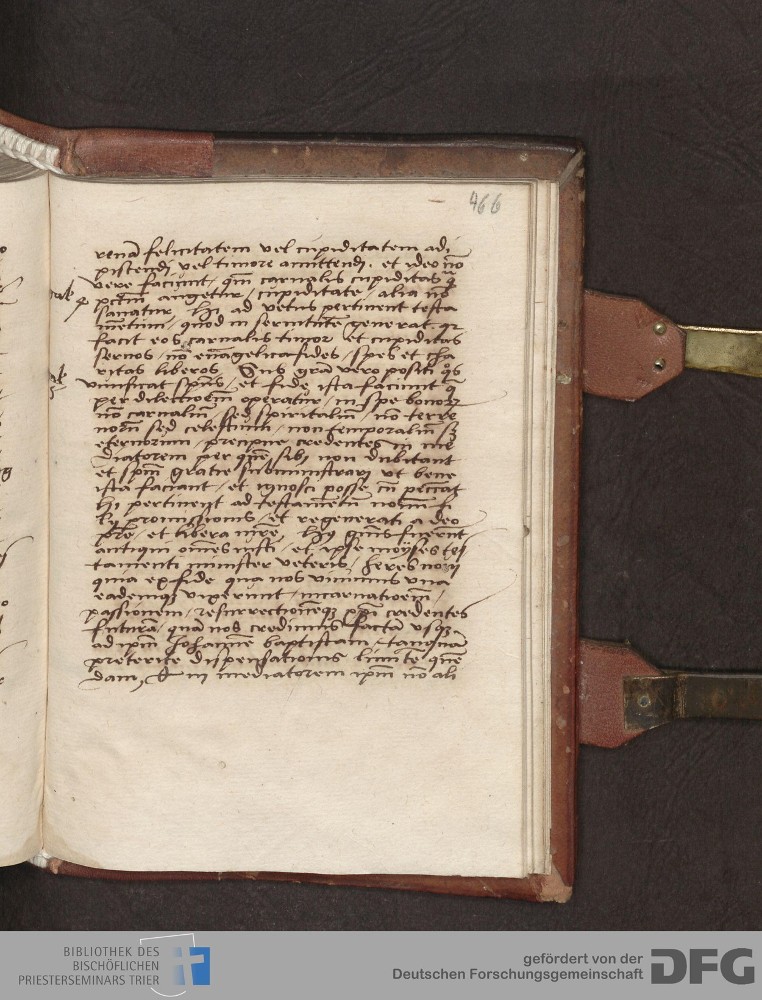 466
renā felicitatem vel cupiditatem adi
piscendi vel timore amittendi. et ideo nō
vere faciunt, qm̄ carnalis cupiditas q̄
pctm̄ augetur, cupiditate alia nō
sanatur, hi ad vetus pertinent testa
mētum, quod in seruitutē generat. qr
facit eos carnalis timor et cupiditas
seruos, nō euāgelica fides, spes et cha
ritas liberos. Sub grā vero positi q̄s
viuificat spūs, et fide ista faciunt q̄
per dilectionē operatur, in spe bonorz
nō carnaliū, sed spiritaliū, nō terre
norū sed celestium, non temporaliū sz
eternorum, precipue credentes in me
diatorem per quē sibi non dubitant
et spm̄ gratie subministrari ut bene
ista faciant, et ignosci posse cū peccāt
hi pertinent ad testamētū nouū fi
lij promissionis, et regenerati a deo
pr̄e, et libera mr̄e, hij⁹ gn̄is fuerūt
antiqui om̄es iusti, et ipse moyses tes
tamenti minister veteris, heres noui
quia ex fide qua nos viuimus vna
eademq; vixerunt, incarnationē,
passionem, resurrectionēq; xpi credentes
futurā, quā nos credimus factā vsq;
ad ipm̄ Johannē baptistam, tanquā
preterite dispensationis limitē quē
dam, & in mediatorem ipm̄ nō ali
BIBLIOTHEK DES
BISCHÖFLICHEN
PRIESTERSEMINARS TRIER
gefördert von der
Deutschen Forschungsgemeinschaft
DFG